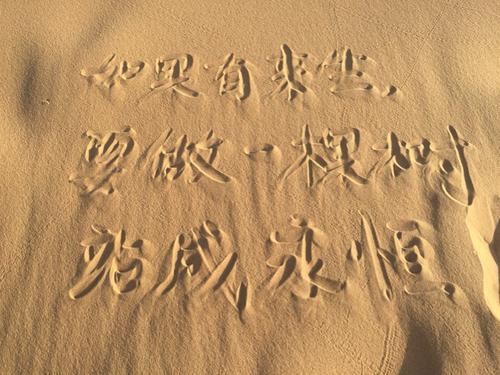 如果有来生，
要做一棵树
站成永恒.